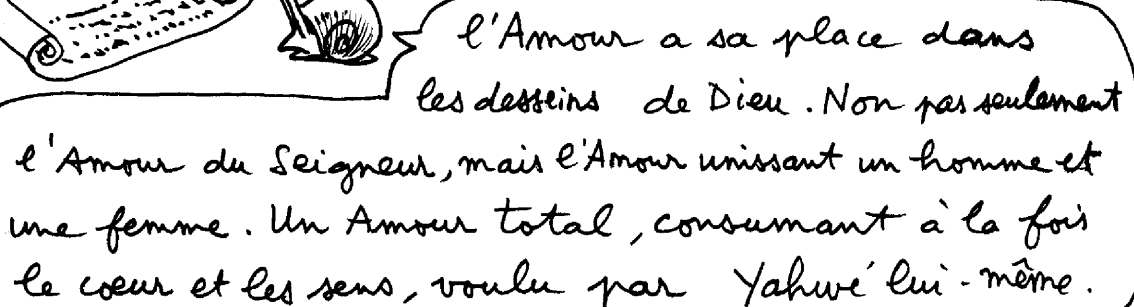 l'Amour a sa place dans
les desseins de Dieu. Non pas seulement
l'Amour du Seigneur, mais l'Amour unissant un homme et
une femme. Un Amour total, consumant à la fois
le cœur et les sens, voulu par Yahwé lui-même.